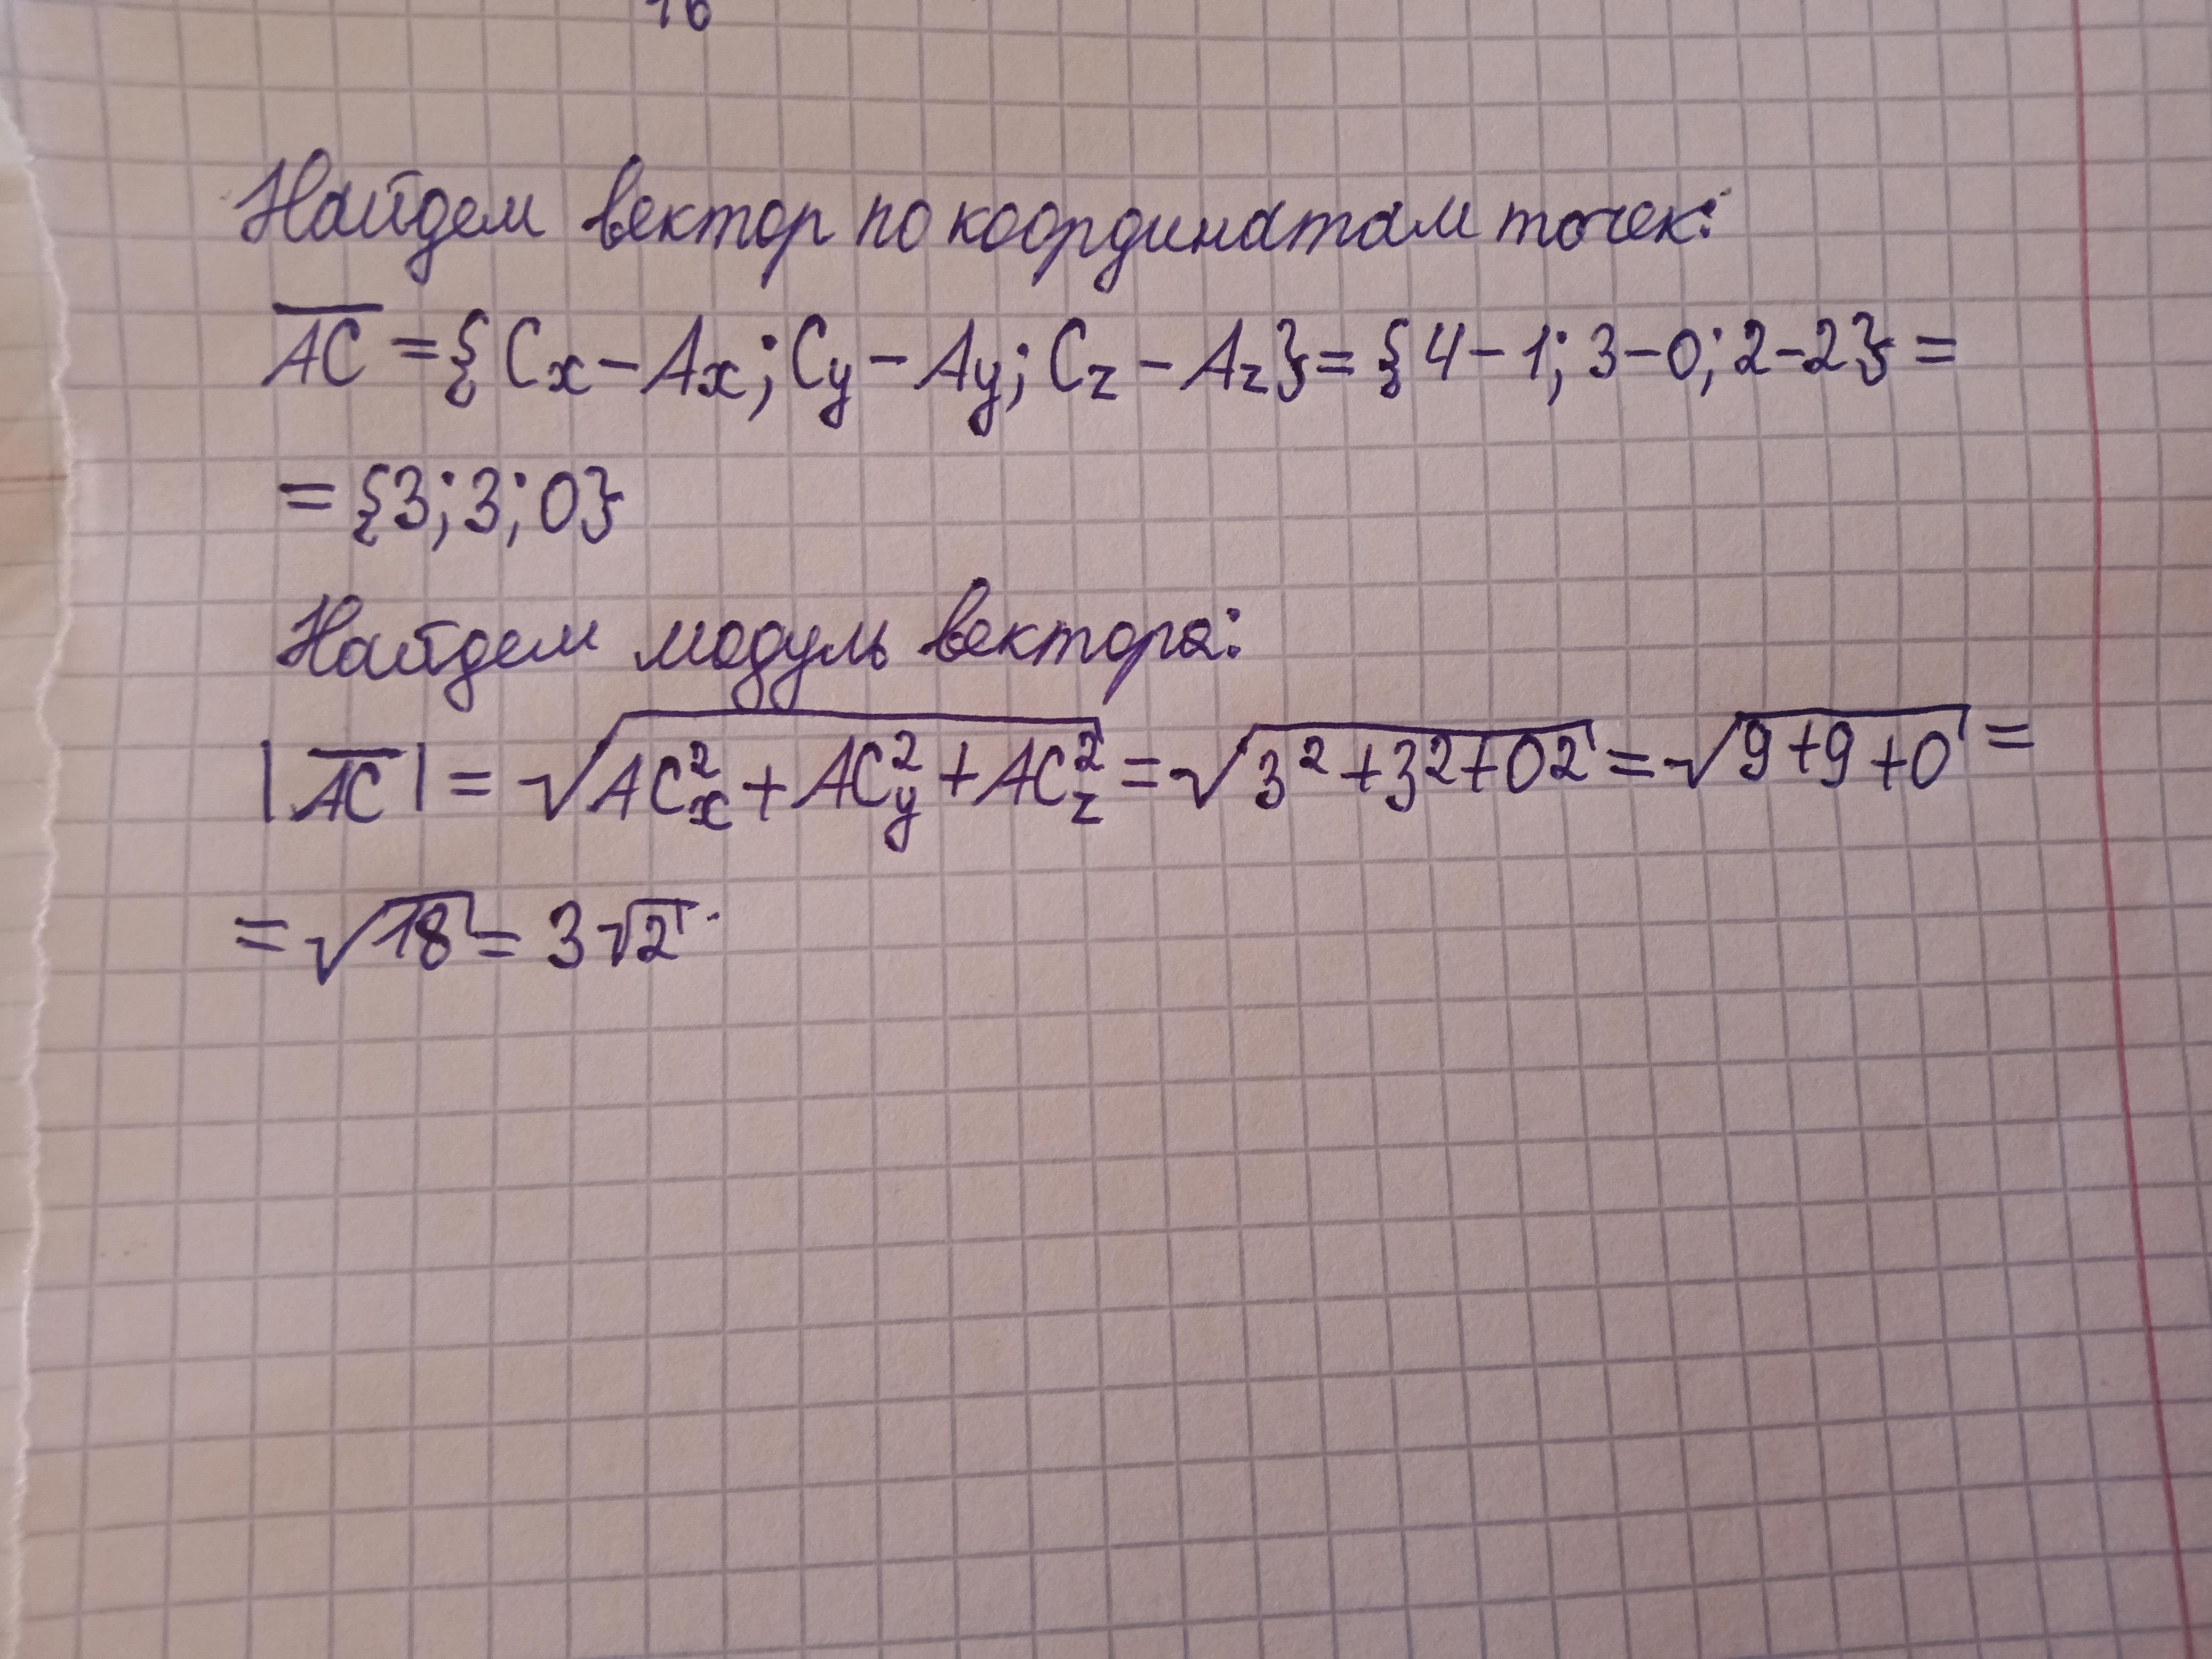 16
Найдем вектор по координатам точек:
AC = {Cx - Ax; Cy - Ay; Cz - Az} = {4 - 1; 3 - 0; 2 - 2} =
= {3; 3; 0}
Найдем модуль вектора:
|AC| = √ACx² + ACy² + ACz² = √3² + 3² + 02 = √9 + 9 + 0 =
= √18 = 3√2